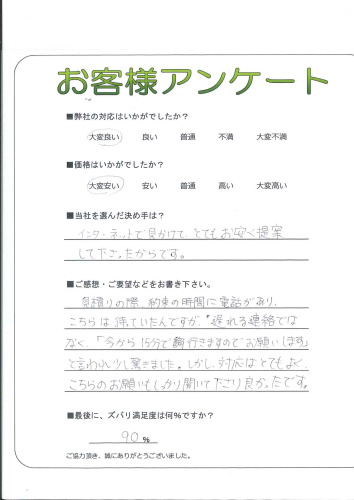 お客様アンケート
■弊社の対応はいかがでしたか？
大変良い 良い 普通 不満 大変不満
■価格はいかがでしたか？
大変安い 安い 普通 高い 大変高い
■当社を選んだ決め手は？
インターネットで見かけて、とてもお安く提案
して下さったからです。
■ご感想・ご要望などをお書き下さい。
見積りの際、約束の時間に電話があり、
こちらは待っていたんですが、遅れる連絡では
なく、「今から15分で行きますのでお願いします」
と言われ少し驚きました。しかし、対応はとてもよく、
こちらのお願いもしっかり聞いて下さり良かったです。
■最後に、ズバリ満足度は何％ですか？
90 ％
ご協力頂き、誠にありがとうございました。